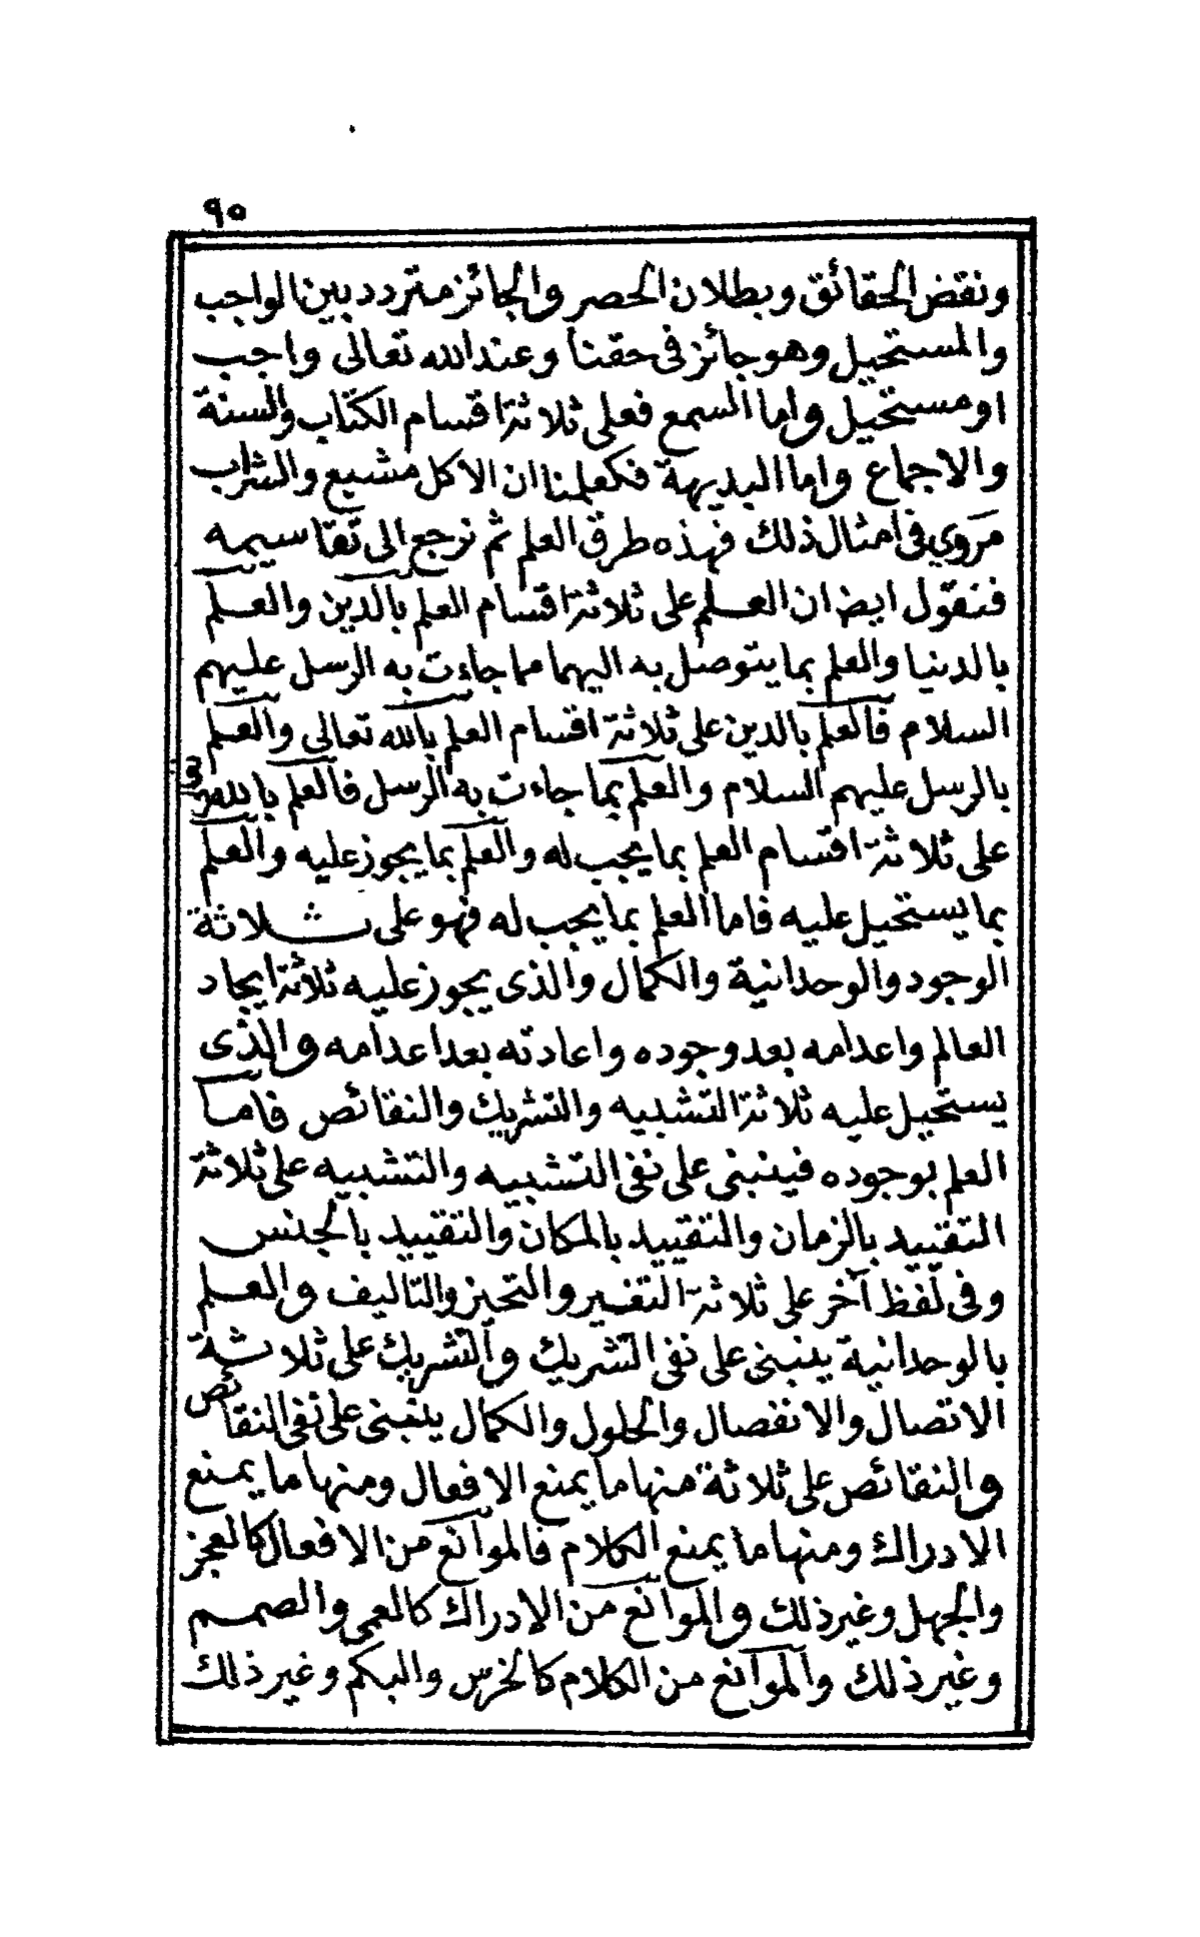 ٩٥
ونقض الحقائق وبطلان الحصر والجائز متردد بين الواجب
والمستحيل وهو جائز فى حقنا وعند الله تعالى واجب
او مستحيل واما السمع فعلى ثلاثة اقسام الكتاب والسنة
والاجماع واما البديهة فكعلمنا ان الاكل مشبع والشراب
مروي فى امثال ذلك فهذه طرق العلم ثم نرجع الى تقاسيمه
فنقول ايضا ان العلم على ثلاثة اقسام العلم بالدين والعلم
بالدنيا والعلم بما يتوصل به اليهما مما جاءت به الرسل عليهم
السلام فالعلم بالدين على ثلاثة اقسام العلم بالله تعالى والعلم
بالرسل عليهم السلام والعلم بما جاءت به الرسل فالعلم بالله
على ثلاثة اقسام العلم بما يجب له والعلم بما يجوز عليه والعلم
بما يستحيل عليه فاما العلم بما يجب له فهو على ثلاثة
الوجود والوحدانية والكمال والذى يجوز عليه ثلاثة ايجاد
العالم واعدامه بعد وجوده واعادته بعد اعدامه والذى
يستحيل عليه ثلاثة التشبيه والتشريك والنقائص فاما
العلم بوجوده فينبنى على نفى التشبيه والتشبيه على ثلاثة
التقييد بالزمان والتقييد بالمكان والتقييد بالجنس
وفى لفظ آخر على ثلاثة التغيير والتحيز والتاليف والعلم
بالوحدانية ينبنى على نفى التشريك والتشريك على ثلاثة
الاتصال والانفصال والحلول والكمال ينبنى على نفى النقائص
والنقائص على ثلاثة منها ما يمنع الافعال ومنها ما يمنع
الادراك ومنها ما يمنع الكلام فالموانع من الافعال كالعجز
والجهل وغير ذلك والموانع من الادراك كالعمى والصمم
وغير ذلك والموانع من الكلام كالخرس والبكم وغير ذلك